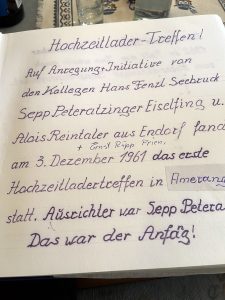 Hochzeitlader-Treffen!
Auf Anregung-Initiative von
den Kollegen Hans Fenzl Seebruck
Sepp Peteratzinger Eiselfing u.
Alois Reintaler aus Endorf fand
+ Ernst Rapp Prien.
am 3. Dezember 1961 das erste
Hochzeitladertreffen in Amerang
statt. Ausrichter war Sepp Petera
Das war der Anfäg!